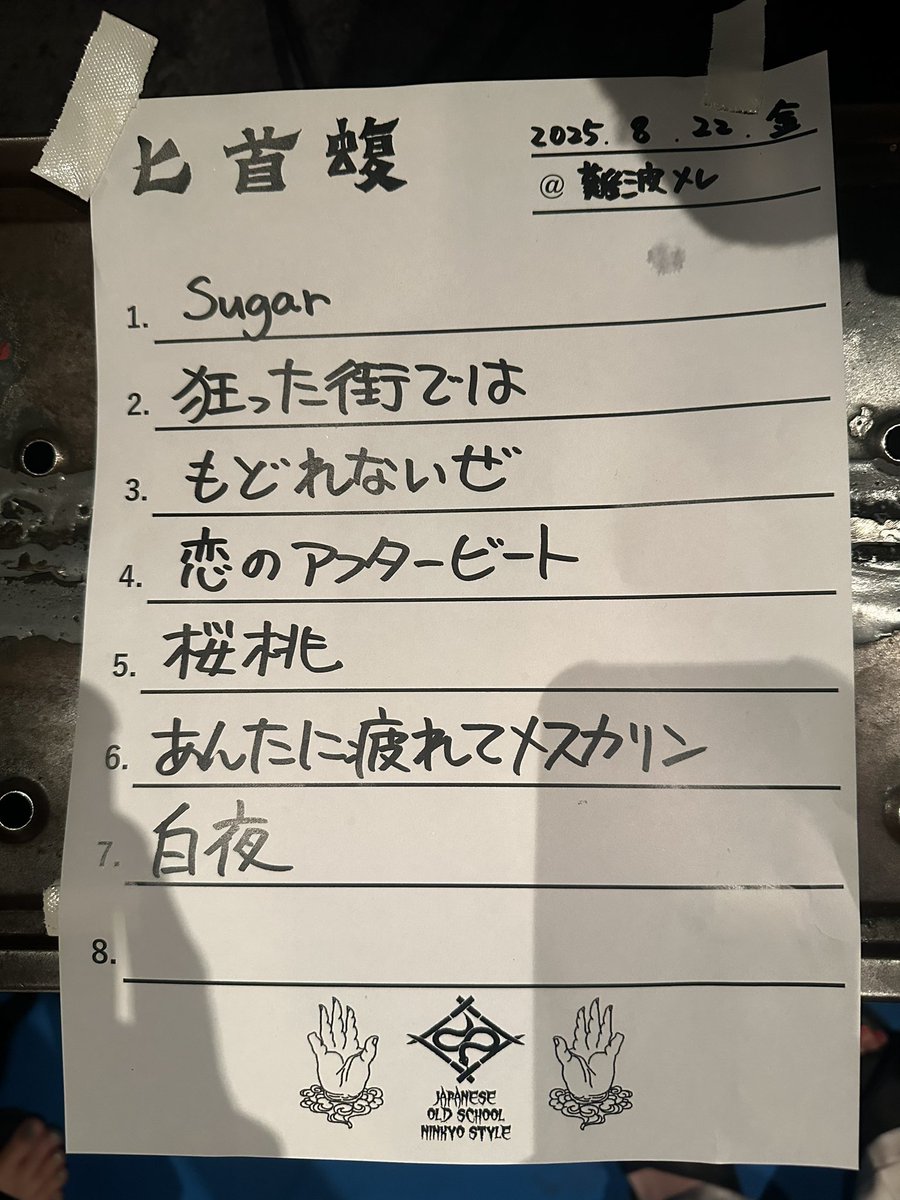 匕首蝮
2025. 8 . 22. 金
@ 難波メレ
1. Sugar
2. 狂った街では
3. もどれないぜ
4. 恋のアフタービート
5. 桜桃
6. あんたに疲れてメスカリン
7. 白夜
8.
JAPANESE
OLD SCHOOL
NINKYO STYLE